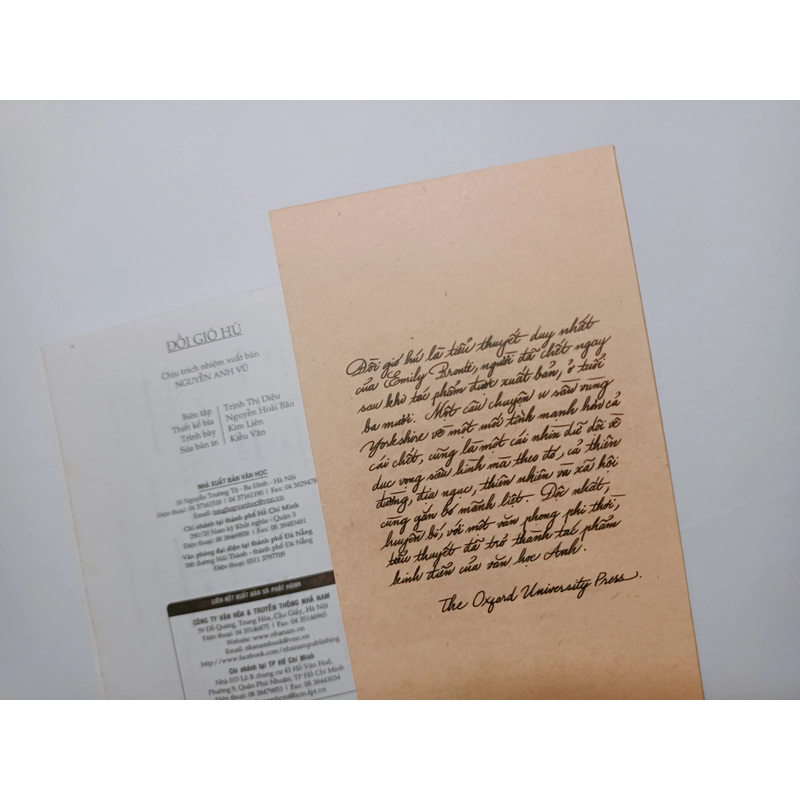 ĐỒI GIÓ HÚ
Chịu trách nhiệm xuất bản
NGUYỄN ANH VŨ
Biên tập Trịnh Thị Diệu
Thiết kế bìa Nguyễn Hoài Bão
Trình bày Kim Liên
Sửa bản in Kiều Vân
NHÀ XUẤT BẢN VĂN HỌC
18 Nguyễn Trường Tộ - Ba Đình - Hà Nội
Điện thoại: 04 37161518 | 04 37161190 | Fax: 04 3829478
Email:
Chi nhánh tại thành phố Hồ Chí Minh
290/20 Nam Kỳ Khởi nghĩa - Quận 3
Điện thoại: 08 38469858 | Fax: 08 38483481
Văn phòng đại diện tại thành phố Đà Nẵng
580 đường Núi Thành - thành phố Đà Nẵng
Điện thoại: 0511 3797709
LIÊN KẾT XUẤT BẢN VÀ PHÁT HÀNH
CÔNG TY VĂN HÓA & TRUYỀN THÔNG NHÃ NAM
59 Đỗ Quang, Trung Hòa, Cầu Giấy, Hà Nội
Điện thoại: 04 35146875 | Fax: 04 35146965
Website: www.nhanam.vn
Email: nhanambook@vnn.vn
http://www.facebook.com/nhanampublishing
Chi nhánh tại TP Hồ Chí Minh
Nhà 015 Lô B chung cư 43 Hồ Văn Huê,
Phường 9, Quận Phú Nhuận, TP Hồ Chí Minh
Điện thoại: 08 38479853 | Fax: 08 38443034
Đồi gió hú là tiểu thuyết duy nhất
của Emily Brontë, người đã chết ngay
sau khi tác phẩm được xuất bản, ở tuổi
ba mươi. Một câu chuyện u sầu vùng
Yorkshire về một mối tình mạnh hơn cả
cái chết, cũng là một cái nhìn dữ dội về
dục vọng siêu hình mà theo đó, cả thiên
đường, địa ngục, thiên nhiên và xã hội
cùng gắn bó mãnh liệt. Độc nhất,
huyền bí, với một văn phong phi thời,
tiểu thuyết đã trở thành tác phẩm
kinh điển của văn học Anh.
The Oxford University Press.